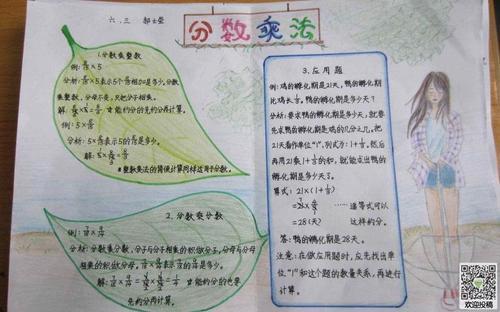 六.三 郝士荣
分数乘法
1.分数乘整数
例: ×5
分析: ×5表示5个 相加是多少,分数
乘整数,分母不变,只把分子相乘。
能约分的先约分再计算。
例: 5×
分析: 5× 表示5的 是多少。
解: 5×
整数乘法的简便计算同样适用于分数。
2.分数乘分数
例:
分析: 分数乘分数,分子与分子相乘的积做分子,分母与分母
相乘的积做分母。 表示 的 是多少。
解: 能约分的也要
先约分再计算。
3.应用题
例: 鸡的孵化期是21天,鸭的孵化期
比鸡长 。鸭的孵化期是多少天?
分析: 要求鸭的孵化期是多少天,就要
先求鸭的孵化期是鸡的几分之几,把
21天看作单位"1",列式为: 1+ ,然后
再用21乘1+ 的和,就能求出鸭的
孵化期是多少天了。
算式: 21×(1+ )
=21× ……递等式可以
=28(天) 这样约分。
答: 鸭的孵化期是28天。
注意: 在做应用题时,应先找出单
位"1"和这个题的数量关系,再进行
计算。
欢迎投稿